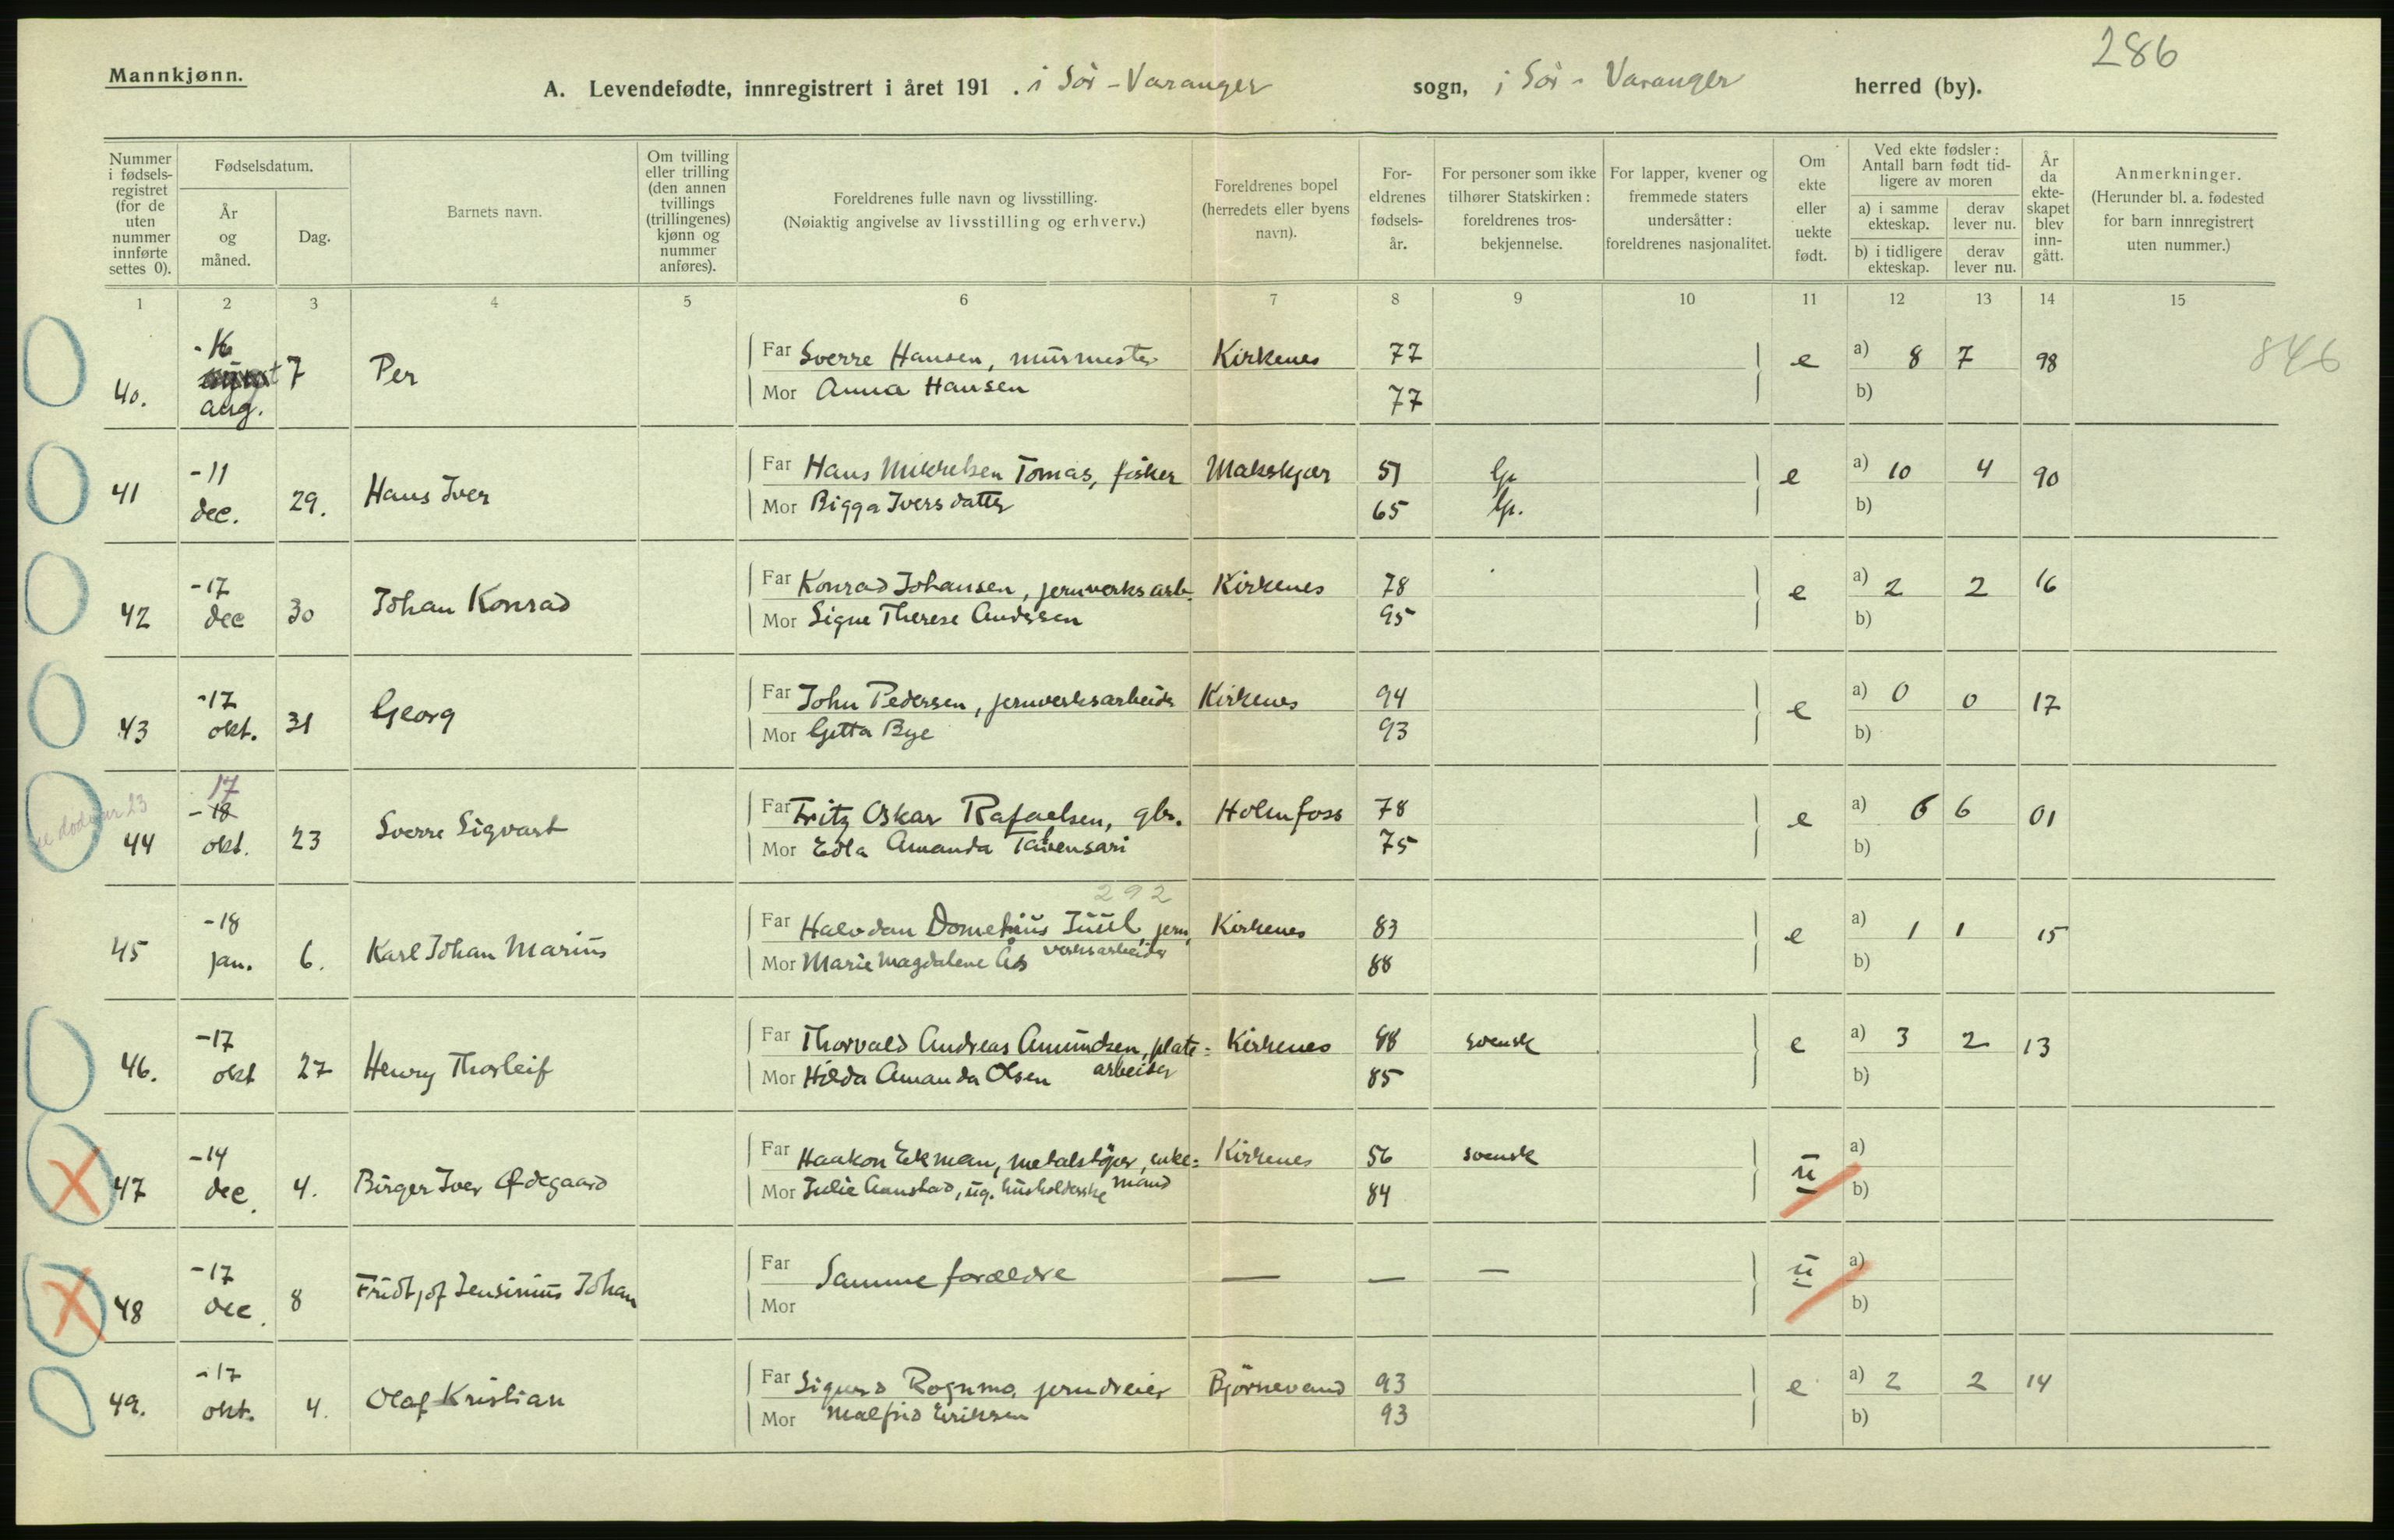 286
Mannkjønn.
A. Levendefødte, innregistrert i året 191 . i Sör-Varanger sogn, i Sör-Varanger herred (by).
Nummer i fødselsregistret (for de uten nummer innførte settes 0).
Fødselsdatum.
År og måned.
Dag.
Barnets navn.
Om tvilling eller trilling (den annen tvillings (trillingenes) kjønn og nummer anføres).
Foreldrenes fulle navn og livsstilling.
(Nøiaktig angivelse av livsstilling og erhverv.)
Foreldrenes bopel (herredets eller byens navn).
For-eldrenes fødsels-år.
For personer som ikke tilhører Statskirken: foreldrenes tros-bekjennelse.
For lapper, kvener og fremmede staters undersåtter: foreldrenes nasjonalitet.
Om ekte eller uekte født.
Ved ekte fødsler: Antall barn født tid-ligere av moren
a) i samme ekteskap. derav lever nu.
b) i tidligere ekteskap. derav lever nu.
År da ekte-skapet blev inn-gått.
Anmerkninger.
(Herunder bl. a. fødested for barn innregistrert uten nummer.)
1 2 3 4 5 6 7 8 9 10 11 12 13 14 15
40. -16 aug. 7 Per Far Sverre Hansen, murmester Kirkenes 77 e a) 8 7 98 846
Mor Anna Hansen 77 b)
41 -11 dec. 29. Hans Iver Far Hans Mikkelsen Tomas, fisker Makskjær 51 e a) 10 4 90
Mor Bigga Iversdatter 65 b)
42 -17 dec 30 Johan Konrad Far Konrad Johansen, jernverksarb. Kirkenes 78 e a) 2 2 16
Mor Signe Therese Andersen 95 b)
43 -17 okt. 31 Georg Far John Pedersen, jernverksarbeider Kirkenes 94 e a) 0 0 17
Mor Gitta Bye 93 b)
44 17 -18 okt. 23 Sverre Sigvart Far Fritz Oskar Rafaelsen, gbr. Holmfoss 78 e a) 6 6 01
Mor Edla Amanda 75 b)
292
45 -18 jan. 6. Karl Johan Marius Far Halvdan Juul, jern Kirkenes 83 e a) 1 1 15
verksarbeider
Mor Marie Magdalene Ås 88 b)
46. -17 okt 27 Henry Thorleif Far Thorvald Andreas Amundsen, plate= Kirkenes 88 svensk e a) 3 2 13
arbeider
Mor Hilda Amanda Olsen 85 b)
47 -14 dec. 4. Birger Iver Ødegaard Far Haakon Ekman, metalstöper, enke= Kirkenes 56 svensk u a)
mand
Mor Julie Aunstad, ug. husholderske 84 b)
48 -17 dec. 8 Fridtjof Jensinius Johan Far Samme forældre — — — u a)
Mor b)
49. -17 okt. 4. Olaf Kristian Far Sigurd Rognmo, jerndreier Björnevand 93 e a) 2 2 14
Mor Malfrid Eriksen 93 b)